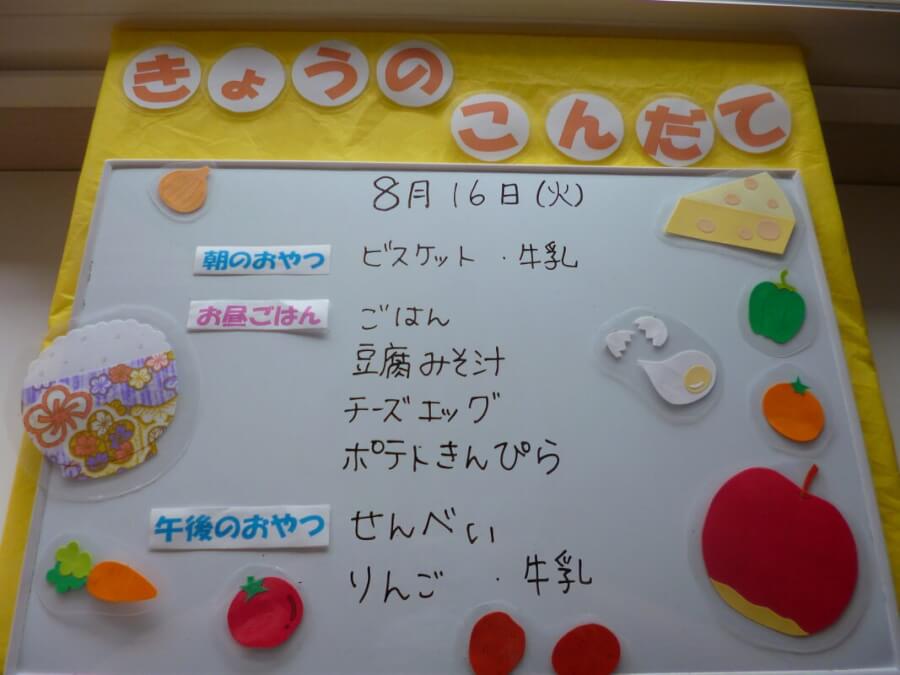 きょうの
こんだて
8月16日(火)
朝のおやつ ビスケット ・牛乳
お昼ごはん ごはん
豆腐みそ汁
チーズエッグ
ポテトきんぴら
午後のおやつ せんべい
りんご ・牛乳